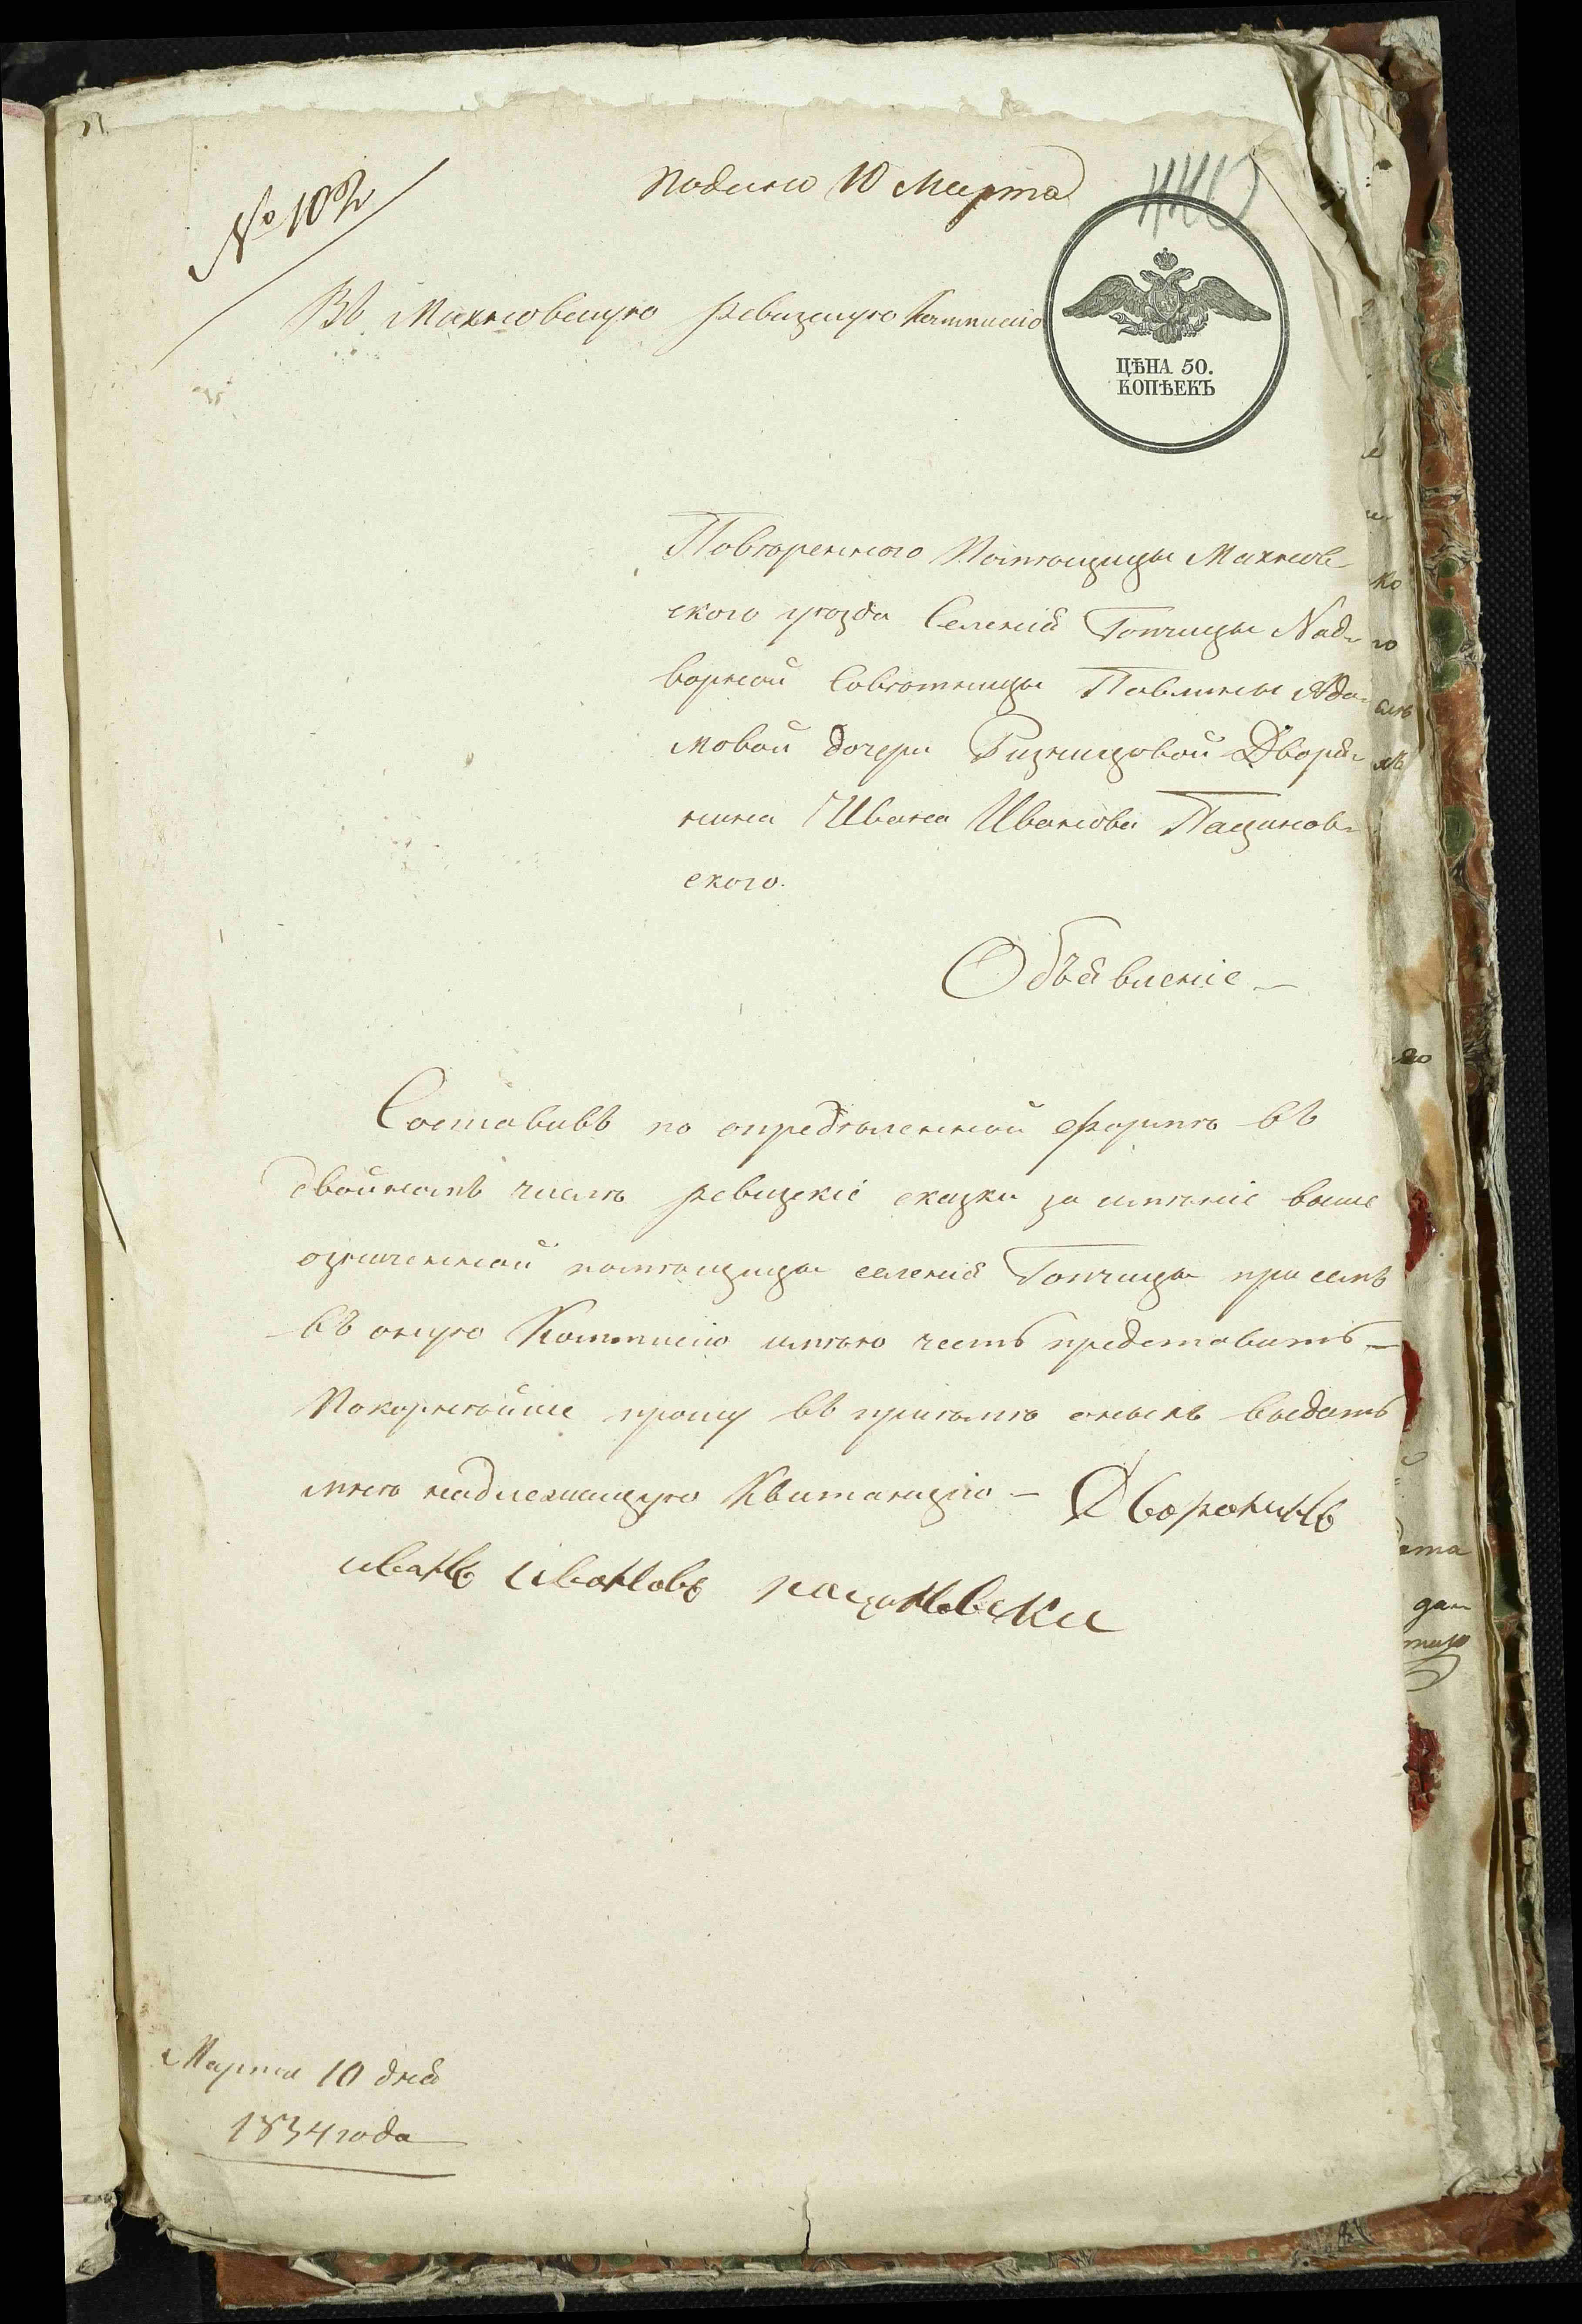 № 102
Подано 10 Марта
Въ Махновскую Ревизскую Коммисію
ЦѢНА 50.
КОПѢЕКЪ
Повѣреннаго Помѣщицы Махнов-
ского уѣзда Селенія Топчицы Над-
ворной Совѣтницы Павлины Ада-
мовой дочери Ризничовой Дворя-
нина Ивана Иванова Пацановъ-
ского.
Объявленіе
Составивъ по опредѣленной формѣ въ
двойномъ числѣ ревизскіе сказки за имѣніе выше
означенной помѣщицы селенія Топчицы при семъ
въ оную Коммисію имѣю честь представить —
Покорнѣйше прошу въ пріемѣ оныхъ выдать
мнѣ надлежащую Квитанцію — Дворянинъ
иванъ ивановъ пацановски
Марта 10 дня
1834 года